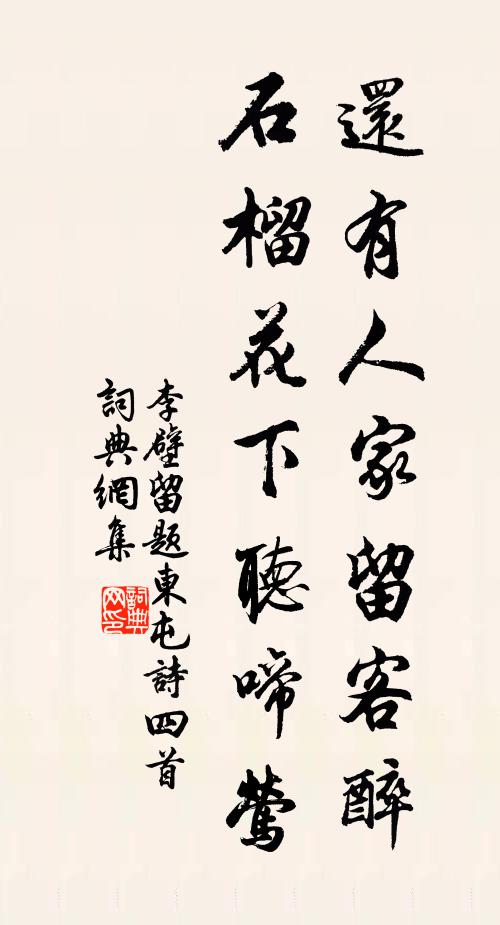 還有人家留客醉
石榴花下聽啼鶯
李壁留題東屯詩四首
詞典網集
詞典
网印